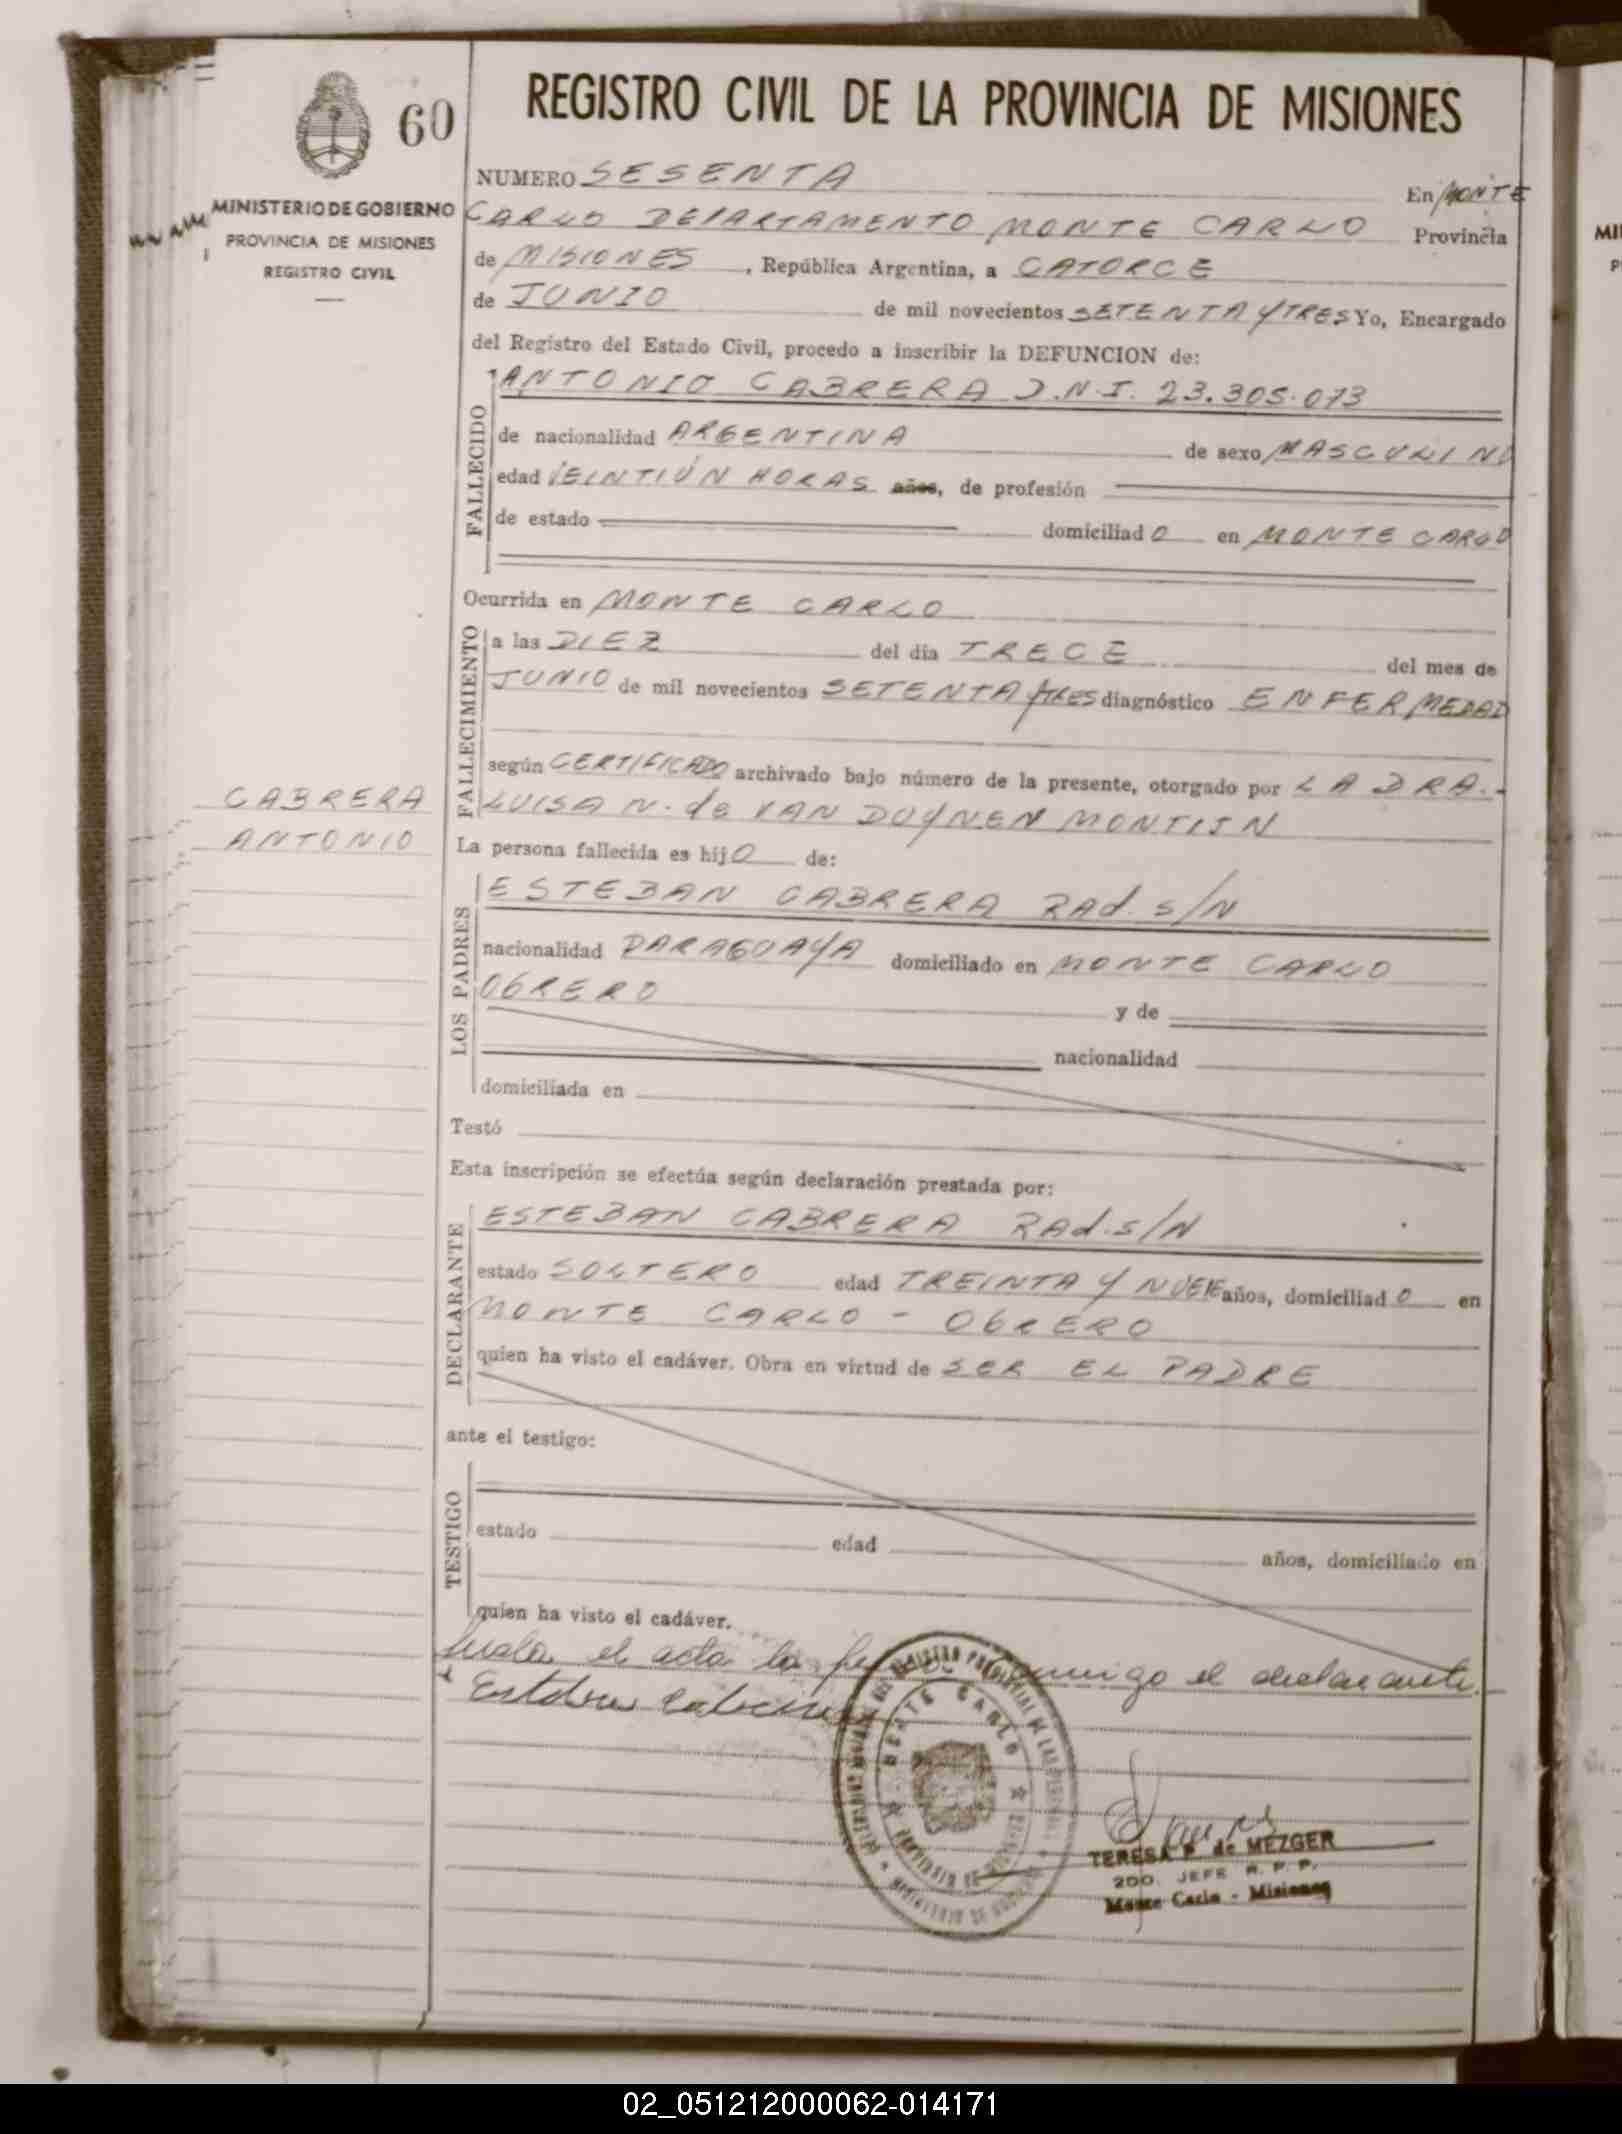 60
MINISTERIO DE GOBIERNO
PROVINCIA DE MISIONES
REGISTRO CIVIL
CABRERA
ANTONIO
REGISTRO CIVIL DE LA PROVINCIA DE MISIONES
NUMERO SESENTA En MONTE
CARLO DEPARTAMENTO MONTE CARLO Provincia
de MISIONES, República Argentina, a CATORCE
de JUNIO de mil novecientos SETENTA Y TRES Yo, Encargado
del Registro del Estado Civil, procedo a inscribir la DEFUNCION de:
FALLECIDO
ANTONIO CABRERA D.N.I. 23.305.073
de nacionalidad ARGENTINA de sexo MASCULINO
edad VEINTIÚN HORAS años, de profesión
de estado domiciliado en MONTE CARLO
Ocurrida en MONTE CARLO
FALLECIMIENTO
a las DIEZ del día TRECE del mes de
JUNIO de mil novecientos SETENTA Y TRES diagnóstico ENFERMEDAD
según CERTIFICADO archivado bajo número de la presente, otorgado por LA DRA.-
LUISA N. de VAN DUYNEN MONTIJN
La persona fallecida es hijO de:
LOS PADRES
ESTEBAN CABRERA RAd. s/N
nacionalidad PARAGUAYA domiciliado en MONTE CARLO
ObRERO y de
nacionalidad
domiciliada en
Testó
Esta inscripción se efectúa según declaración prestada por:
DECLARANTE
ESTEBAN CABRERA RAd. s/N
estado SOLTERO edad TREINTA Y NUEVE años, domiciliadO en
MONTE CARLO - ObRERO
quien ha visto el cadáver. Obra en virtud de SER EL PADRE
ante el testigo:
TESTIGO
estado edad años, domiciliado en
quien ha visto el cadáver.
el acta la conmigo el declarante.
MONTE CARLO
TERESA P. de MEZGER
2DO. JEFE R. P. P.
Monte Carlo - Misiones
02_051212000062-014171